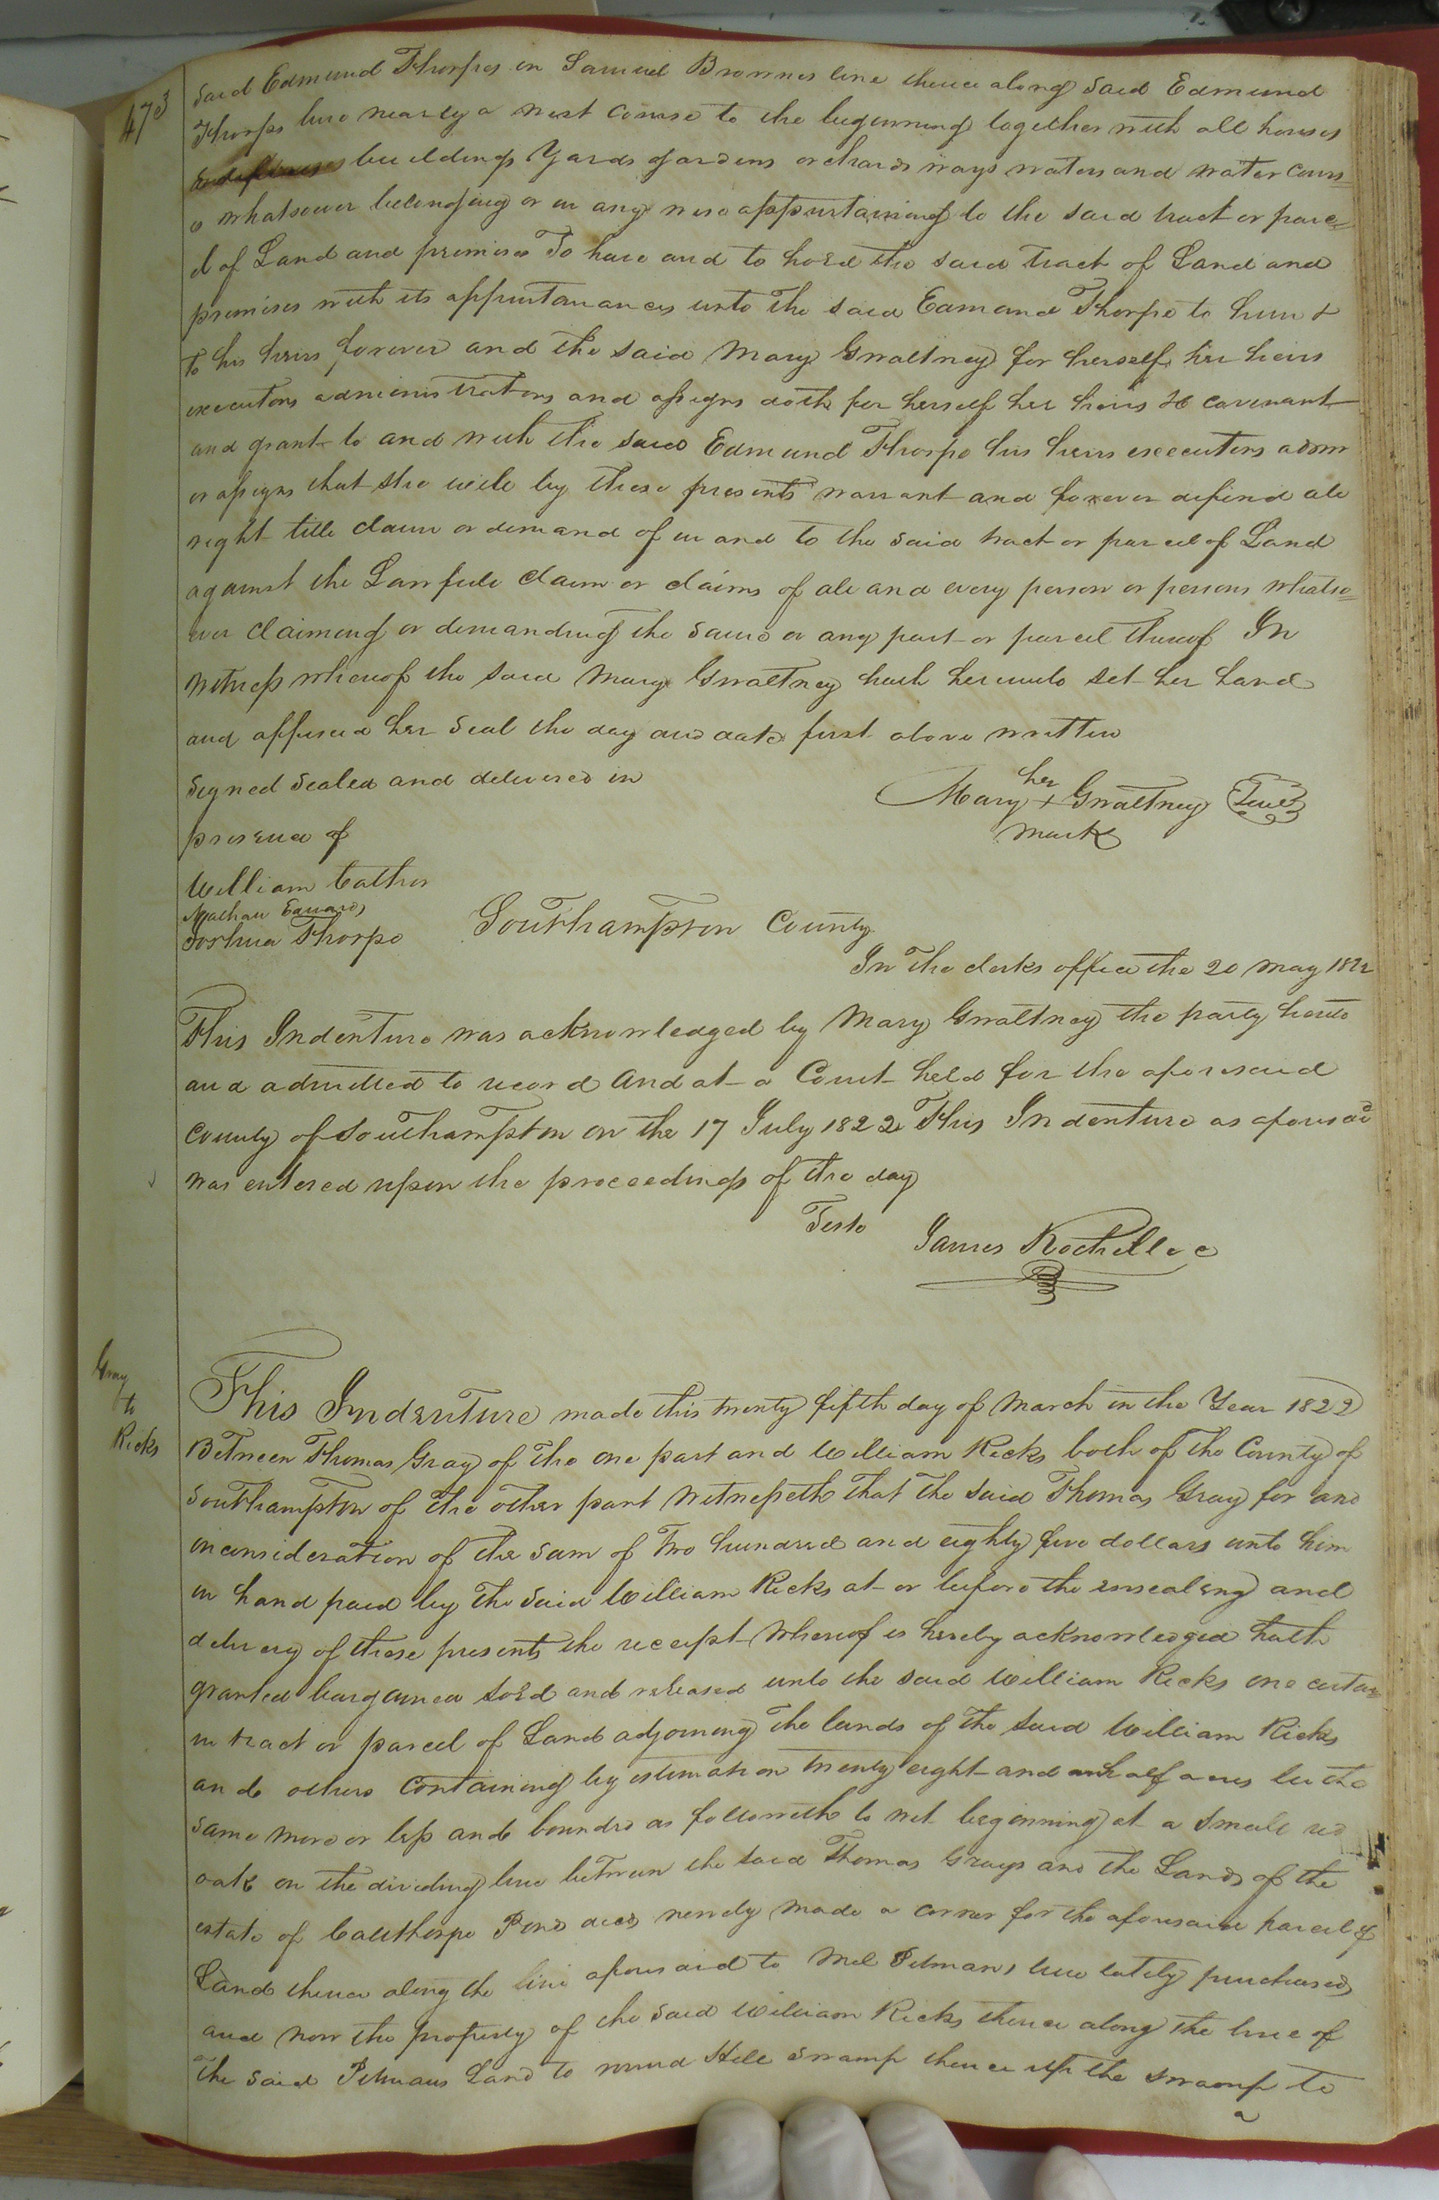 473
said Edmund Thorpes in Samuel Brownes line thence along said Edmund
Thorps line nearly a west course to the beginning together with all houses
buildings Yards gardens orchards ways waters and water cours=
s whatsoever belonging or in any wise appurtaining to the said tract or parce=
l of Land and premises To have and to hold the said tract of Land and
premises with its appurtanances unto the said Edmund Thorpe to him &
to his heirs forever and the said Mary Gwaltney for herself her heirs
executors administrators and assigns doth for herself her heirs &c covenant
and grant to and with the said Edmund Thorpe his heirs executors adm
or assigns that she will by these presents warrant and forever defend all
right title claim or demand of in and to the said tract or parcel of Land
against the Lawfull claim or claims of all and every person or persons whatso=
ever claiming or demanding the same or any part or parcel thereof In
witness whereof the said Mary Gwaltney hath hereunto set her hand
and affixed her seal the day and date first above written
signed sealed and delivered in
presence of
her
Mary + Gwaltney Seal
mark
William
Nathan Edwards
Joshua Thorpe
Southampton County
In the clerks office the 20 May 1822
This Indenture was acknowledged by Mary Gwaltney the party hereto
and admitted to record And at a Court held for the aforesaid
county of Southampton on the 17 July 1822 This Indenture as aforesaid
was entered upon the proceedings of the day
Teste James Rochelle c
Gray
to
Ricks
This Indenture made this twenty fifth day of March in the Year 1822
Between Thomas Gray of the one part and William Ricks both of the County of
Southampton of the other part Witnesseth that the said Thomas Gray for and
in consideration of the sum of Two hundred and eighty five dollars unto him
in hand paid by the said William Ricks at or before the ensealing and
delivery of these presents the receipt whereof is hereby acknowledged hath
granted bargained sold and released unto the said William Ricks one certa=
in tract or parcel of Land adjoining the lands of the said William Ricks
and others Containing by estimation twenty eight and half acres be the
same more or less and bounded as followeth to wit beginning at a small red
oak on the dividing line between the said Thomas Grays and the Lands of the
estate of Calthorpe Pond decd newly made a corner for the aforesaid parcel of
Land thence along the line aforesaid to Mel Pitmans line lately purchased
and now the property of the said William Ricks thence along the line of
the said Pitmans Land to round Hill swamp thence up the swamp to
a